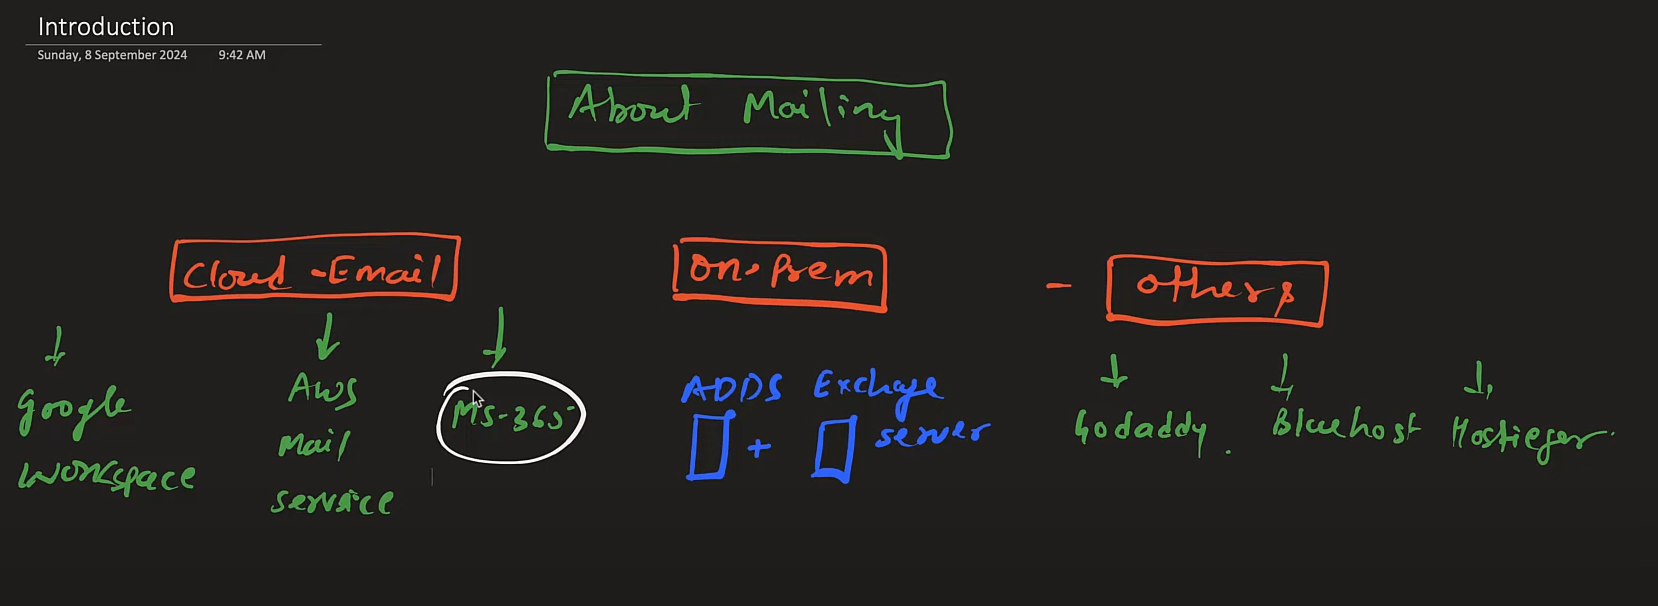 Introduction
Sunday, 8 September 2024 9:42 AM
About Mailing
Cloud - Email
On-Prem
- Others
Google
Workspace
Aws
Mail
Service
MS-365
ADDS Exchage
server
+
Godaddy.
Bluehost
Hostieger.